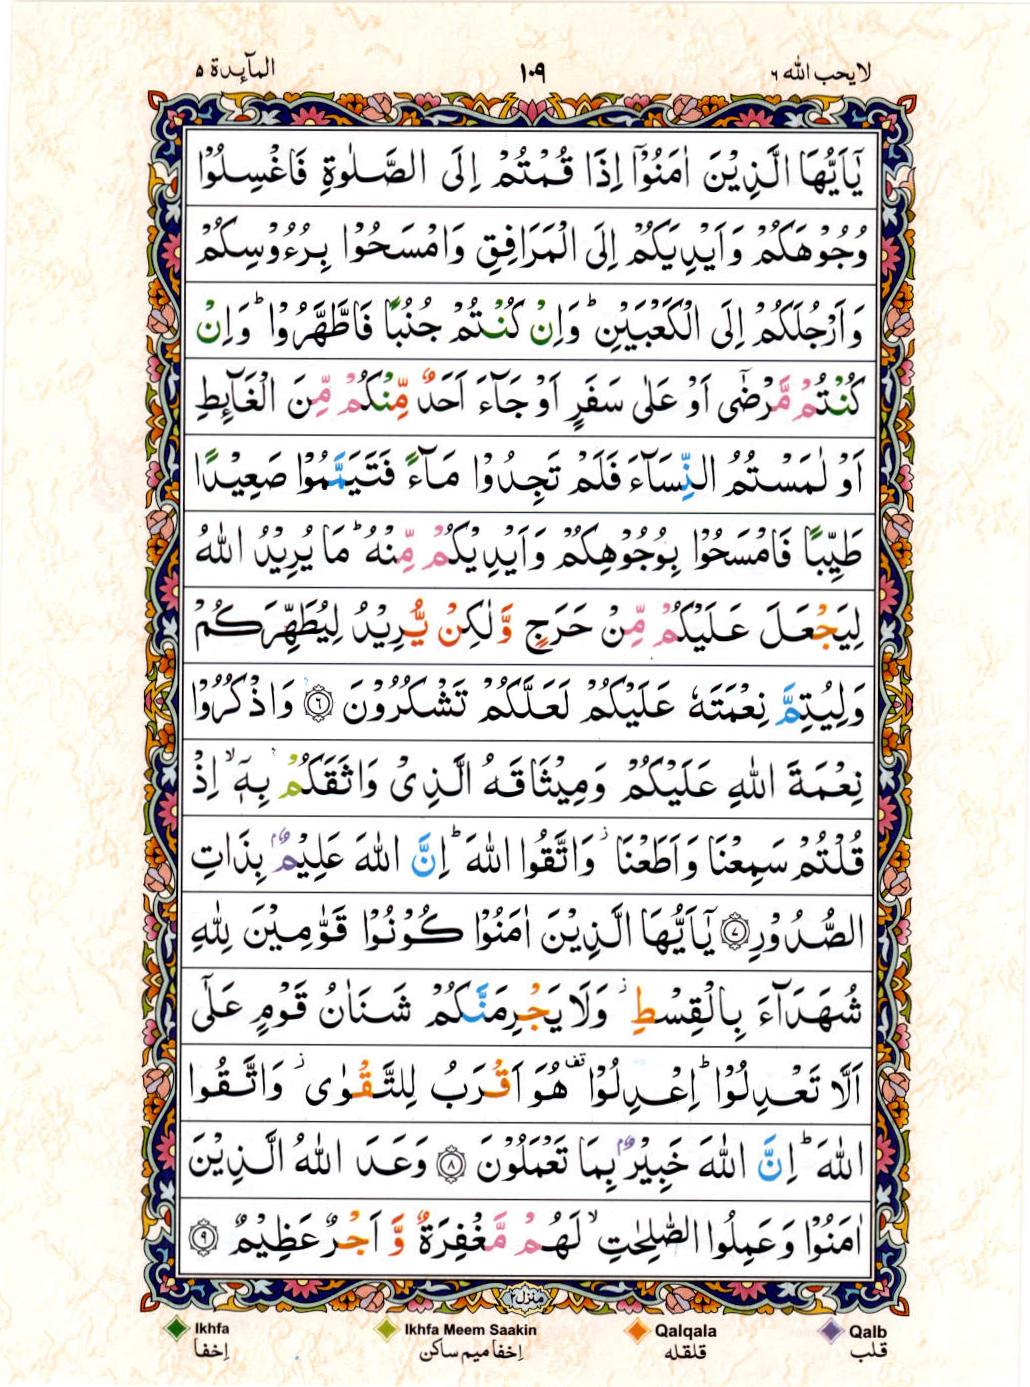 لایحب الله ٦ ١٠٩ المآىِٕدة ٥
یٰۤاَیُّهَا الَّذِیْنَ اٰمَنُوْۤا اِذَا قُمْتُمْ اِلَی الصَّلٰوةِ فَاغْسِلُوْا
وُجُوْهَكُمْ وَاَیْدِیَكُمْ اِلَی الْمَرَافِقِ وَامْسَحُوْا بِرُءُوْسِكُمْ
وَاَرْجُلَكُمْ اِلَی الْكَعْبَیْنِ ؕ وَاِنْ كُنْتُمْ جُنُبًا فَاطَّهَّرُوْا ؕ وَاِنْ
كُنْتُمْ مَّرْضٰۤی اَوْ عَلٰی سَفَرٍ اَوْ جَآءَ اَحَدٌ مِّنْكُمْ مِّنَ الْغَآىِٕطِ
اَوْ لٰمَسْتُمُ النِّسَآءَ فَلَمْ تَجِدُوْا مَآءً فَتَیَمَّمُوْا صَعِیْدًا
طَیِّبًا فَامْسَحُوْا بِوُجُوْهِكُمْ وَاَیْدِیْكُمْ مِّنْهُ ؕ مَا یُرِیْدُ اللّٰهُ
لِیَجْعَلَ عَلَیْكُمْ مِّنْ حَرَجٍ وَّلٰكِنْ یُّرِیْدُ لِیُطَهِّرَكُمْ
وَلِیُتِمَّ نِعْمَتَهٗ عَلَیْكُمْ لَعَلَّكُمْ تَشْكُرُوْنَ ﴿٦﴾ وَاذْكُرُوْا
نِعْمَةَ اللّٰهِ عَلَیْكُمْ وَمِیْثَاقَهُ الَّذِیْ وَاثَقَكُمْ بِهٖۤ ۙ اِذْ
قُلْتُمْ سَمِعْنَا وَاَطَعْنَا ؗ وَاتَّقُوا اللّٰهَ ؕ اِنَّ اللّٰهَ عَلِیْمٌۢ بِذَاتِ
الصُّدُوْرِ ﴿٧﴾ یٰۤاَیُّهَا الَّذِیْنَ اٰمَنُوْا كُوْنُوْا قَوّٰمِیْنَ لِلّٰهِ
شُهَدَآءَ بِالْقِسْطِ ؗ وَلَا یَجْرِمَنَّكُمْ شَنَاٰنُ قَوْمٍ عَلٰۤی
اَلَّا تَعْدِلُوْا ؕ اِعْدِلُوْا قف هُوَ اَقْرَبُ لِلتَّقْوٰی ؗ وَاتَّقُوا
اللّٰهَ ؕ اِنَّ اللّٰهَ خَبِیْرٌۢ بِمَا تَعْمَلُوْنَ ﴿٨﴾ وَعَدَ اللّٰهُ الَّذِیْنَ
اٰمَنُوْا وَعَمِلُوا الصّٰلِحٰتِ ۙ لَهُمْ مَّغْفِرَةٌ وَّاَجْرٌ عَظِیْمٌ ﴿٩﴾
منزل ٢
Ikhfa Ikhfa Meem Saakin Qalqala Qalb
إخفا إخفا میم ساکن قلقله قلب